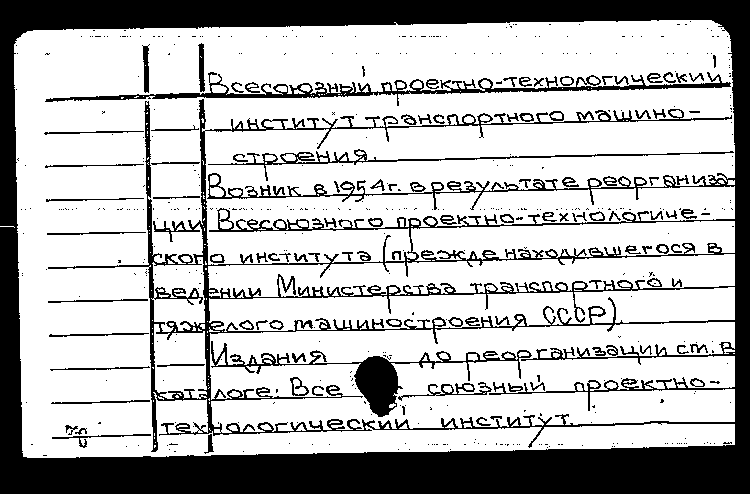 Всесоюзный проектно-технологический
институт транспортного машино-
строения.
Возник в 1954г. в результате реорганиза-
ции Всесоюзного проектно-технологиче-
ского института (прежде находившегося в
ведении Министерства транспортного и
тяжелого машиностроения СССР)
Издания до реорганизации см. в
каталоге: Все союзный проектно-
технологический институт.